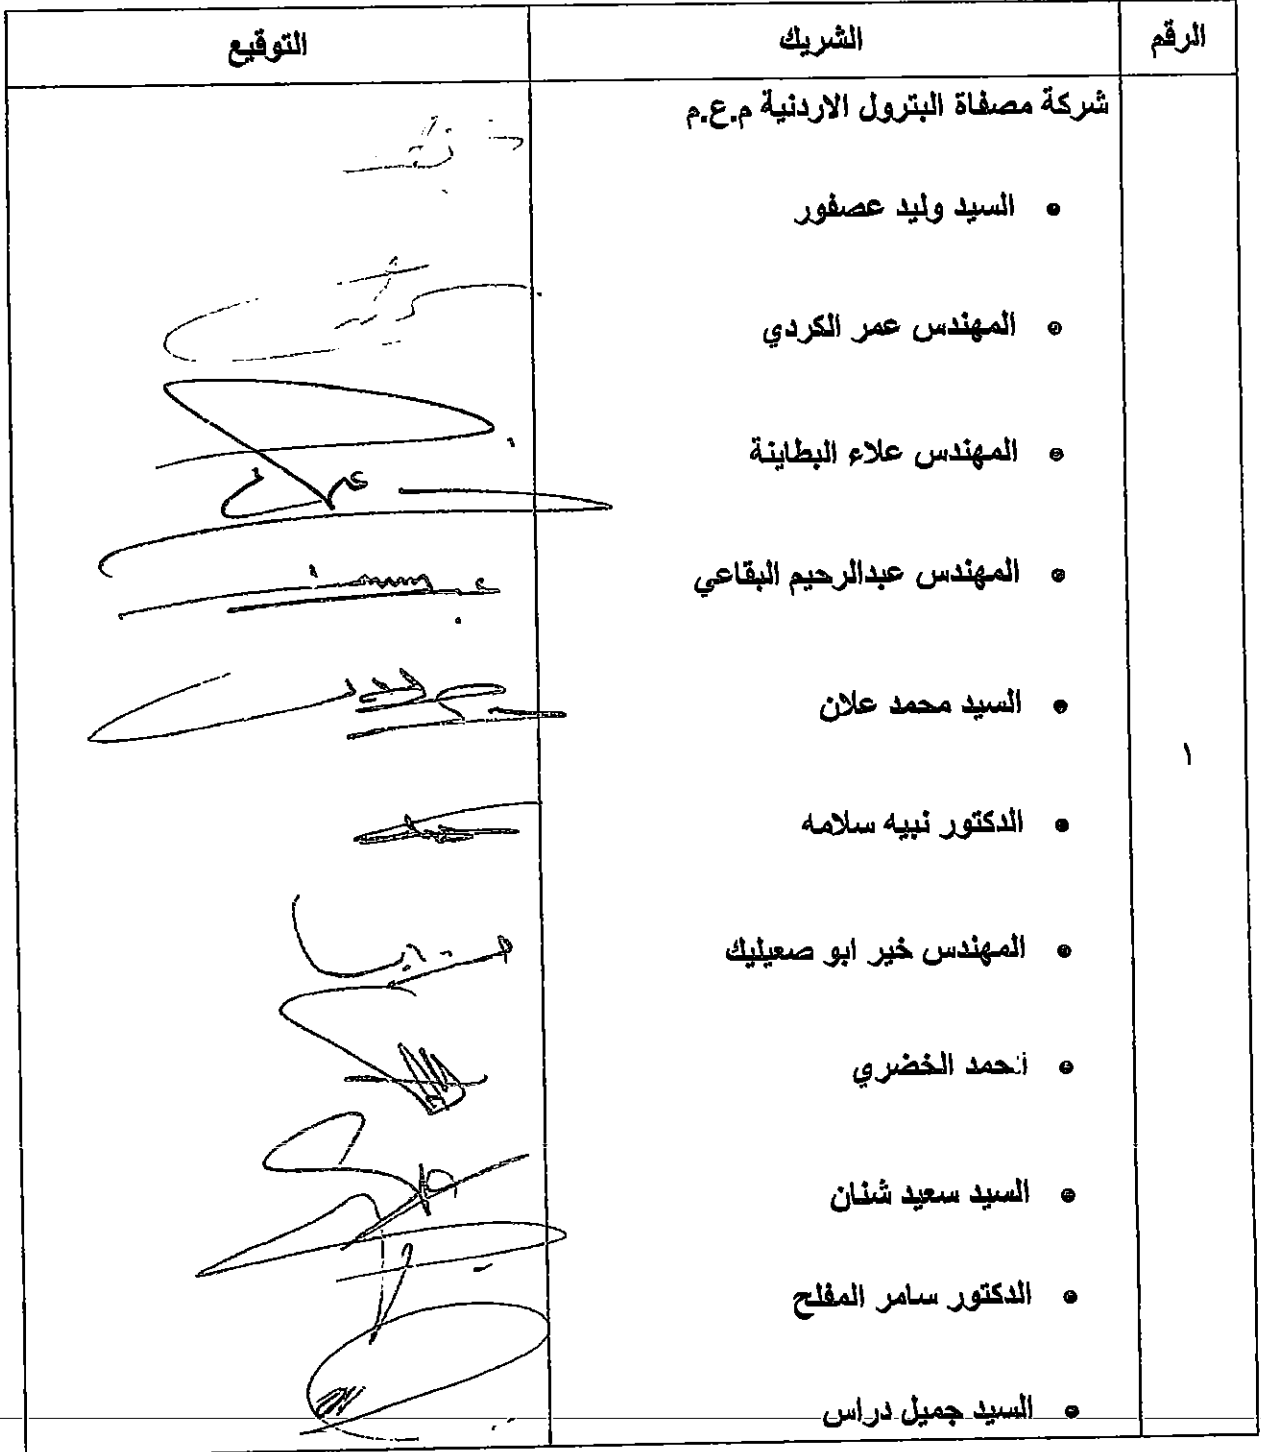 الرقم الشريك التوقيع
شركة مصفاة البترول الاردنية م.ع.م
• السيد وليد عصفور
• المهندس عمر الكردي
• المهندس علاء البطاينة
• المهندس عبدالرحيم البقاعي
• السيد محمد علان
١
• الدكتور نبيه سلامه
• المهندس خير ابو صعيليك
• احمد الخضري
• السيد سعيد شنان
• الدكتور سامر المفلح
• السيد جميل دراس